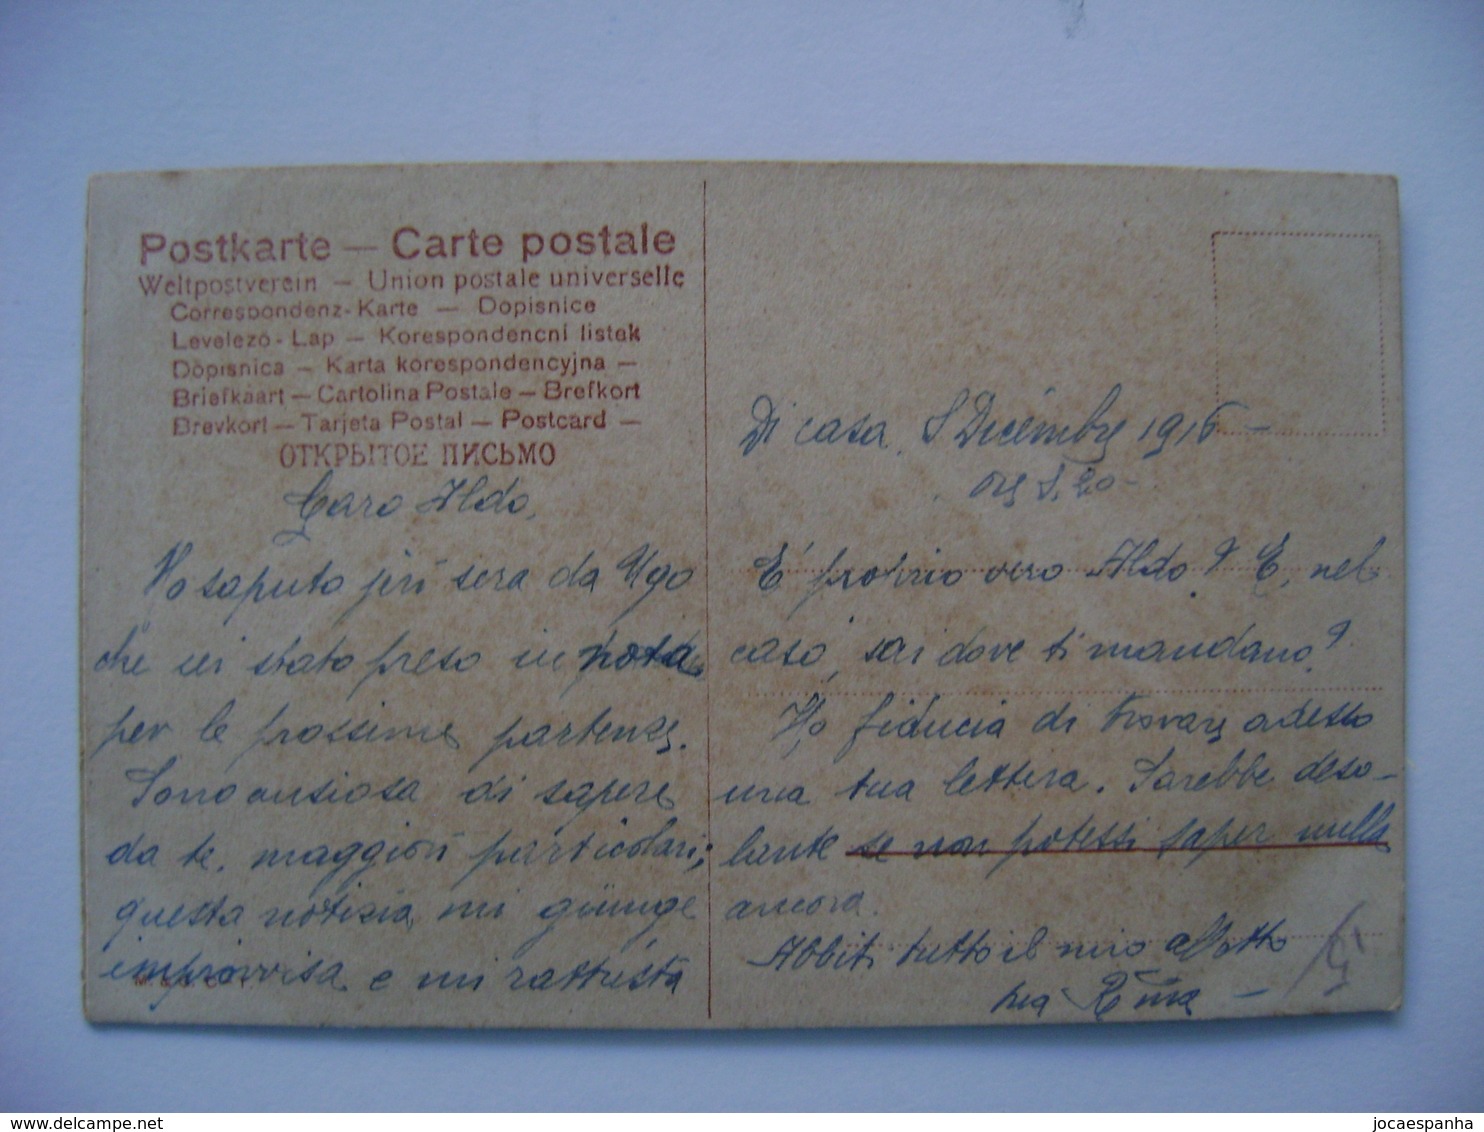 Postkarte — Carte postale
Weltpostverein — Union postale universelle
Correspondenz-Karte — Dopisnice
Levelező-Lap — Korespondencni listek
Dopisnica — Karta korespondencyjna —
Briefkaart — Cartolina Postale — Brefkort
Brevkort — Tarjeta Postal — Postcard —
ОТКРЫТОЕ ПИСЬМО
Caro Aldo,
Ho saputo jeri sera da Ugo
che sei stato preso in nota
per le prossime partenze.
Sono ansiosa di sapere
da te, maggiori particolari;
questa notizia mi giunge
improvvisa e mi rattrista
Di casa, 8 Dicembre 1916 —
ore
E' proprio vero Aldo? E, nel
caso, sai dove ti mandano?
Ho fiducia di trovare adesso
una tua lettera. Sarebbe deso-
lante se non potessi saper nulla
ancora.
Abbiti tutto il mio affetto
tua
delcampe.net
jocaespanha